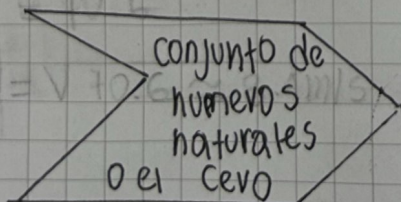 conjunto de
numeros
naturales
o el cero